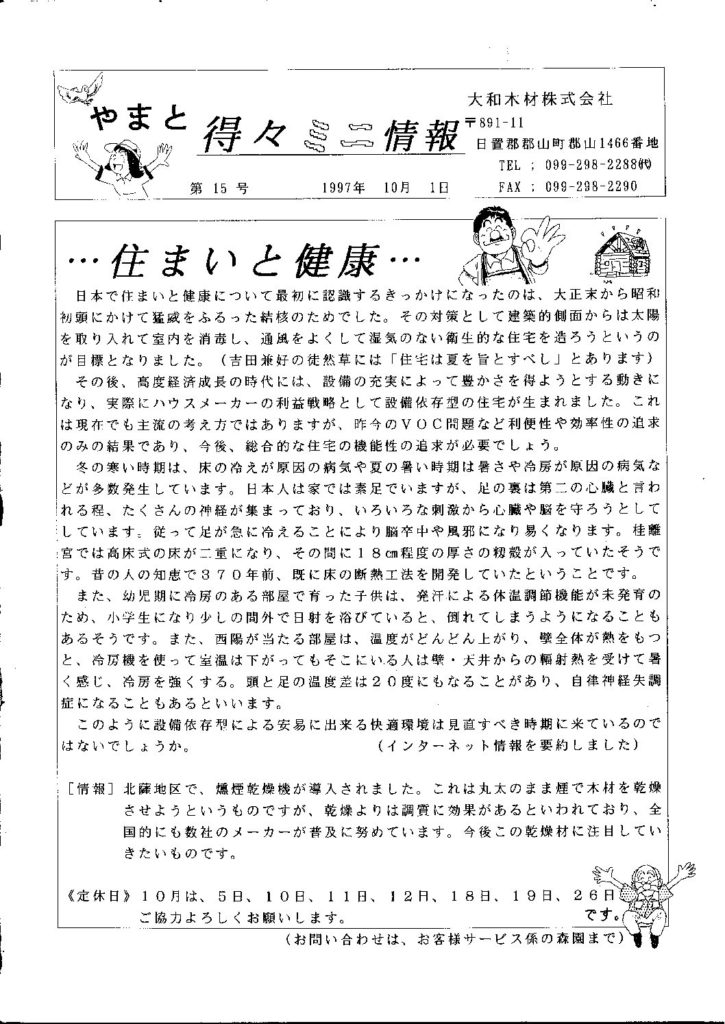 やまと 得々ミニ情報
大和木材株式会社
〒891-11
日置郡郡山町郡山1466番地
TEL ; 099-298-2288㈹
FAX ; 099-298-2290
第 15 号　1997年 10月 1日
…住まいと健康…
日本で住まいと健康について最初に認識するきっかけになったのは、大正末から昭和
初頭にかけて猛威をふるった結核のためでした。その対策として建築的側面からは太陽
を取り入れて室内を消毒し、通風をよくして湿気のない衛生的な住宅を造ろうというの
が目標となりました。（吉田兼好の徒然草には「住宅は夏を旨とすべし」とあります）
その後、高度経済成長の時代には、設備の充実によって豊かさを得ようとする動きに
なり、実際にハウスメーカーの利益戦略として設備依存型の住宅が生まれました。これ
は現在でも主流の考え方ではありますが、昨今のＶＯＣ問題など利便性や効率性の追求
のみの結果であり、今後、総合的な住宅の機能性の追求が必要でしょう。
冬の寒い時期は、床の冷えが原因の病気や夏の暑い時期は暑さや冷房が原因の病気な
どが多数発生しています。日本人は家では素足でいますが、足の裏は第二の心臓と言わ
れる程、たくさんの神経が集まっており、いろいろな刺激から心臓や脳を守ろうとして
しています。従って足が急に冷えることにより脳卒中や風邪になり易くなります。桂離
宮では高床式の床が二重になり、その間に１８㎝程度の厚さの籾殻が入っていたそうで
す。昔の人の知恵で３７０年前、既に床の断熱工法を開発していたということです。
また、幼児期に冷房のある部屋で育った子供は、発汗による体温調節機能が未発育の
ため、小学生になり少しの間外で日射を浴びていると、倒れてしまうようになることも
あるそうです。また、西陽が当たる部屋は、温度がどんどん上がり、壁全体が熱をもつ
と、冷房機を使って室温は下がってもそこにいる人は壁・天井からの輻射熱を受けて暑
く感じ、冷房を強くする。頭と足の温度差は２０度にもなることがあり、自律神経失調
症になることもあるといいます。
このように設備依存型による安易に出来る快適環境は見直すべき時期に来ているので
はないでしょうか。　（インターネット情報を要約しました）
［情報］北薩地区で、燻煙乾燥機が導入されました。これは丸太のまま煙で木材を乾燥
させようというものですが、乾燥よりは調質に効果があるといわれており、全
国的にも数社のメーカーが普及に努めています。今後この乾燥材に注目してい
きたいものです。
《定休日》１０月は、５日、１０日、１１日、１２日、１８日、１９日、２６日
です。
ご協力よろしくお願いします。
（お問い合わせは、お客様サービス係の森園まで）